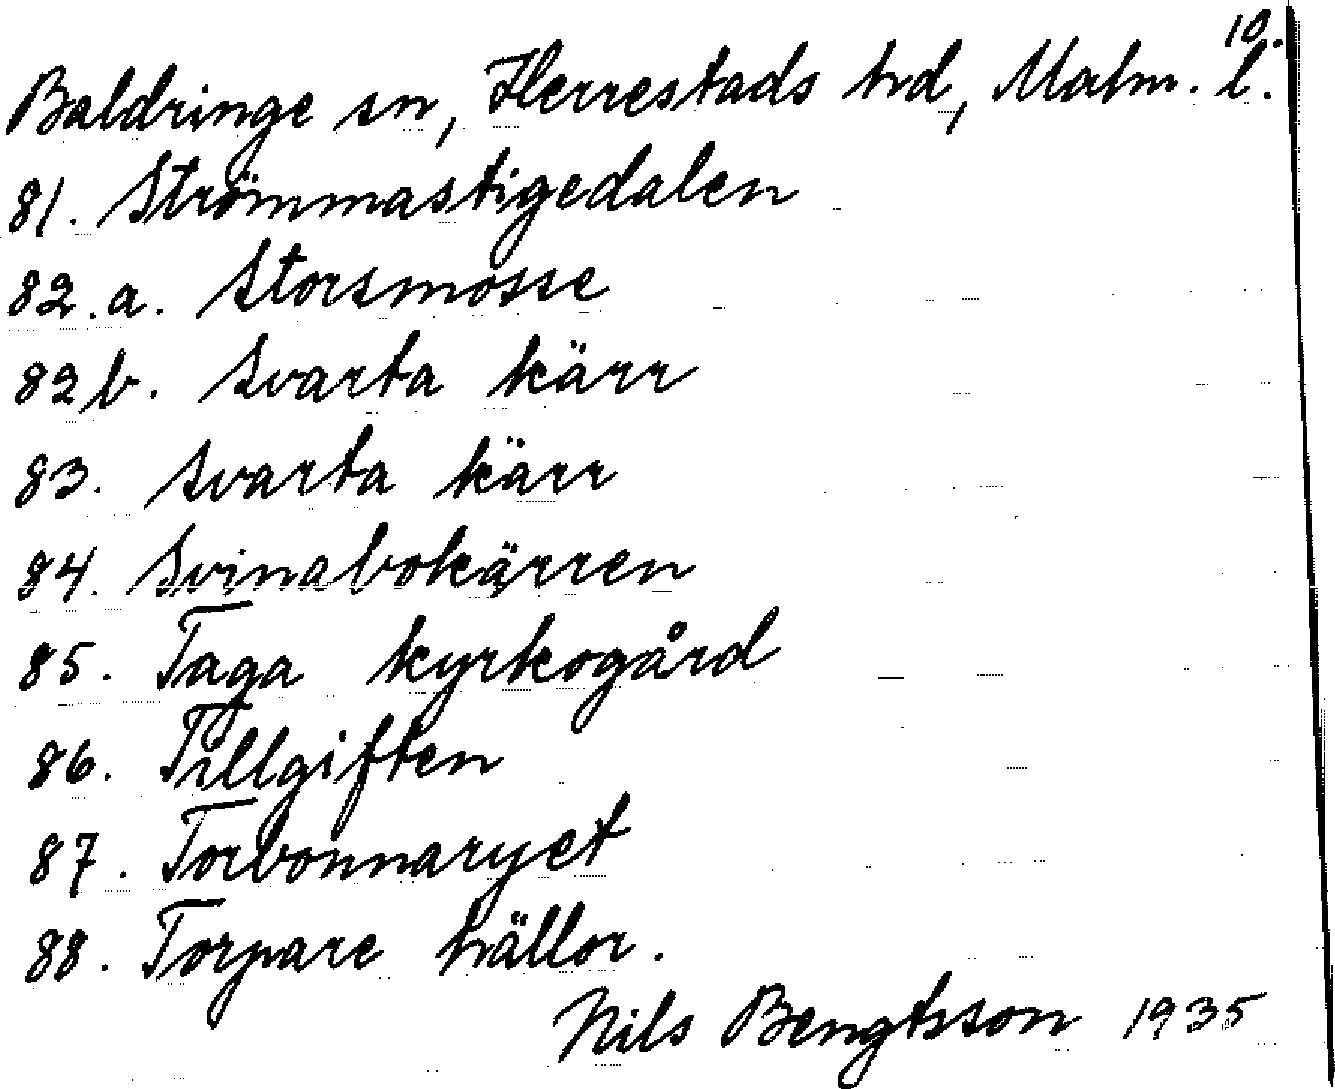 10.
Baldringe sn, Herrestads hd, Malm. l.
81. Strömmastigedalen
82.a. Storsmosse
82b. Svarta kärr
83. Svarta kärr
84. Svinabokärren
85. Taga kyrkogård
86. Tillgiften
87. Torbonnaryet
88. Torpare hällor.
Nils Bengtsson 1935